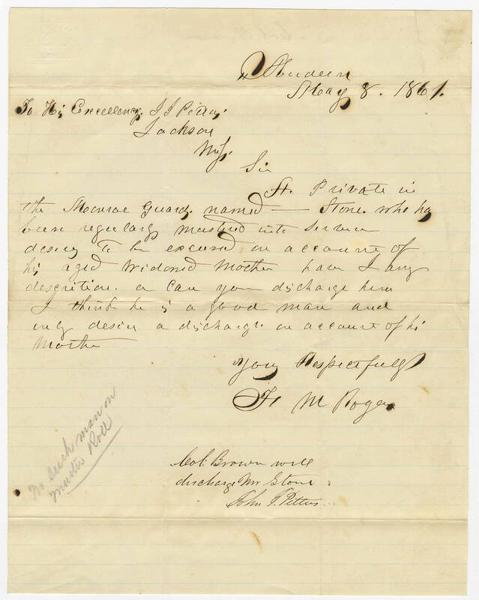 Aberdeen
May 8. 1861.
To His Excellency J J Pettus
Jackson
Miss.
Sir
A Private in
the Monroe Guards named — Stone who has
been regularly mustered into Service
desires to be excused on account of
his aged widowed Mother have I any
descretion or can you discharge him
I think he is a good man and
only desires a discharge on account of his
Mother
Yours Respectfully
F M Rogers
Col. Brown will
discharge Mr Stone.
John J. Pettus
No such man on
Muster Roll